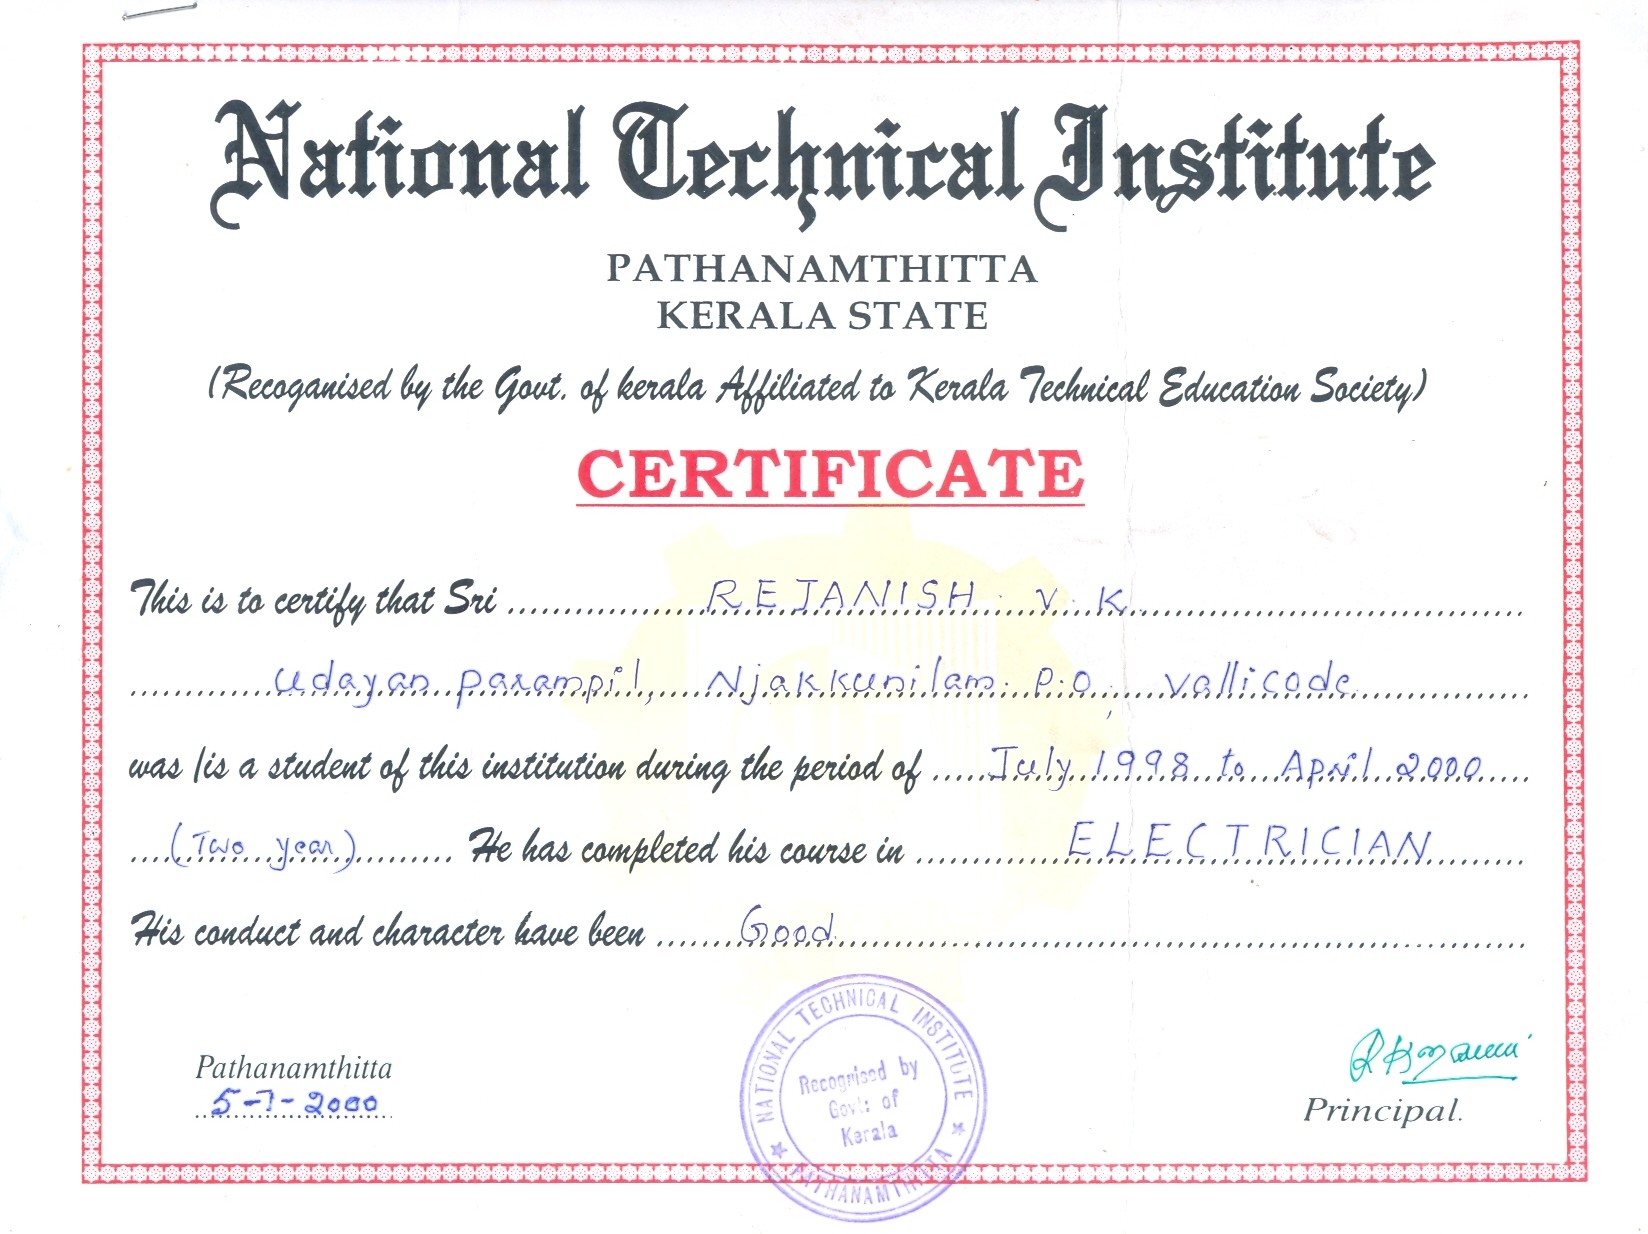 National Technical Institute
PATHANAMTHITTA
KERALA STATE
(Recoganised by the Govt. of kerala Affiliated to Kerala Technical Education Society)
CERTIFICATE
This is to certify that Sri ........ REJANISH. V. K ........
........ Udayan parampil, Njakkunilam. P.O, Vallicode ........
was /is a student of this institution during the period of ..... July 1998 to April 2000 .....
.... (Two year) ........ He has completed his course in ........ ELECTRICIAN ........
His conduct and character have been ....... Good ........
Pathanamthitta
5-7-2000
NATIONAL TECHNICAL INSTITUTE
Recognised by
Govt: of
Kerala
★ PATHANAMTHITTA ★
Principal.